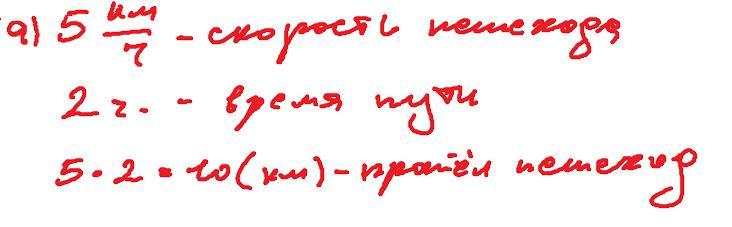 а) 5 км/ч - скорость пешехода
2 ч. - время пути
5 · 2 = 10 (км) - прошёл пешеход